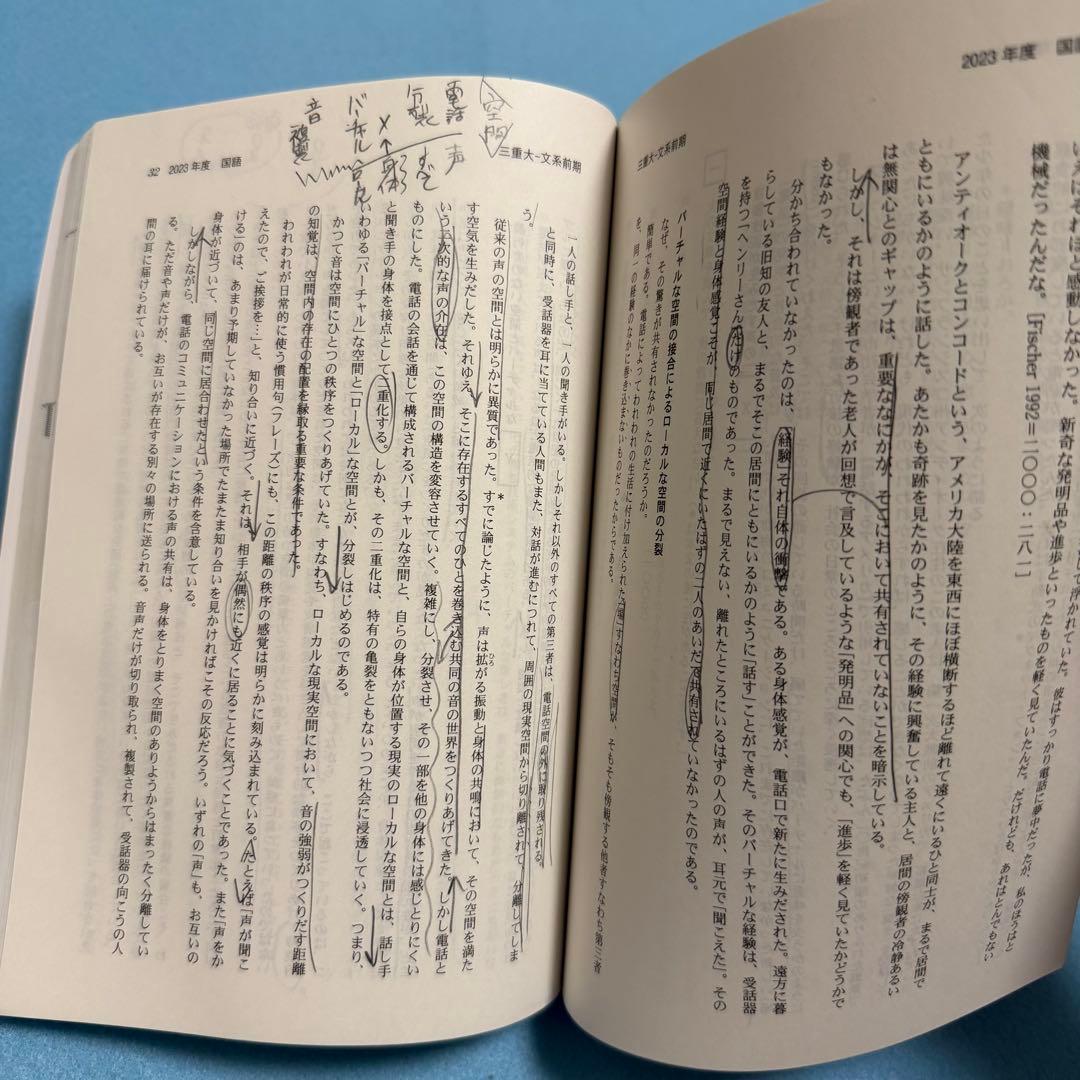 2023年度　国語
して浮かれていた。彼はすっかり電話に夢中だったが、私のほうはと
いえばそれほど感動しなかった。新奇な発明品や進歩といったものを軽く見ていたんだ。だけれども、あれはとんでもない
機械だったんだな。[Fischer 1992＝二〇〇〇：二八一]
アンティオークとコンコードという、アメリカ大陸を東西にほぼ横断するほど離れて遠くにいるひと同士が、まるで居間で
ともにいるかのように話した。あたかも奇跡を見たかのように、その経験に興奮している主人と、居間の傍観者の冷静あるい
は無関心とのギャップは、重要ななにかが、そこにおいて共有されていないことを暗示している。
しかし、それは傍観者であった老人が回想で言及しているような「発明品」への関心でも、「進歩」を軽く見ていたかどうかで
もなかった。
分かち合われていなかったのは、「経験」それ自体の衝撃である。ある身体感覚が、電話口で新たに生みだされた。遠方に暮
らしている旧知の友人と、まるでそこの居間にともにいるかのように「話す」ことができた。そのバーチャルな経験は、受話器
を持つ「ヘンリーさん」だけのものであった。まるで見えない、離れたところにいるはずの人の声が、耳元で「聞こえた」。その
空間経験と身体感覚こそが、同じ居間で近くにいたはずの二人のあいだで共有されていなかったのである。
バーチャルな空間の接合によるローカルな空間の分裂
なぜ、その驚きが共有されなかったのだろうか。
簡単である。電話によってわれわれの生活に付け加えられた「場」すなわち空間が、そもそも傍観する他者すなわち第三者
を、同一の経験のなかに巻き込まないものだったからである。
三重大-文系前期
空間
電話　声
分裂
身体
X
バーチャル
音　複製
三重大-文系前期
一人の話し手と、一人の聞き手がいる。しかしそれ以外のすべての第三者は、電話空間の外に取り残される。
と同時に、受話器を耳に当てている人間もまた、対話が進むにつれて、周囲の現実空間から切り離されて、分離してしま
う。
従来の声の空間とは明らかに異質であった。すでに論じたように、声は拡がる振動と身体の共鳴において、その空間を満た
ひろ
＊
す空気を生みだした。それゆえ、そこに存在するすべてのひとを巻き込む共同の音の世界をつくりあげてきた。しかし電話と
いう二次的な声の介在は、この空間の構造を変容させていく。複雑にし、分裂させ、その一部を他の身体には感じとりにくい
ものにした。電話の会話を通じて構成されるバーチャルな空間と、自らの身体が位置する現実のローカルな空間とは、話し手
と聞き手の身体を接点として二重化する。しかも、その二重化は、特有の亀裂をともないつつ社会に浸透していく。つまり、
いわゆる「バーチャル」な空間と「ローカル」な空間とが、分裂しはじめるのである。
かつて音は空間にひとつの秩序をつくりあげていた。すなわち、ローカルな現実空間において、音の強弱がつくりだす距離
の知覚は、空間内の存在の配置を縁取る重要な条件であった。
われわれが日常的に使う慣用句(フレーズ)にも、この距離の秩序の感覚は明らかに刻み込まれている。たとえば「声が聞こ
えたので、ご挨拶を…」と、知り合いに近づく。それは、相手が偶然にも近くに居ることに気づくことであった。また「声をか
ける」のは、あまり予期していなかった場所でたまたま知り合いを見かければこその反応だろう。いずれの「声」も、お互いの
身体が近づいて、同じ空間に居合わせたという条件を含意している。
しかしながら、電話のコミュニケーションにおける声の共有は、身体をとりまく空間のありようからはまったく分離してい
る。ただ音や声だけが、お互いが存在する別々の場所に送られる。音声だけが切り取られ、複製されて、受話器の向こうの人
間の耳に届けられている。
32　2023年度　国語